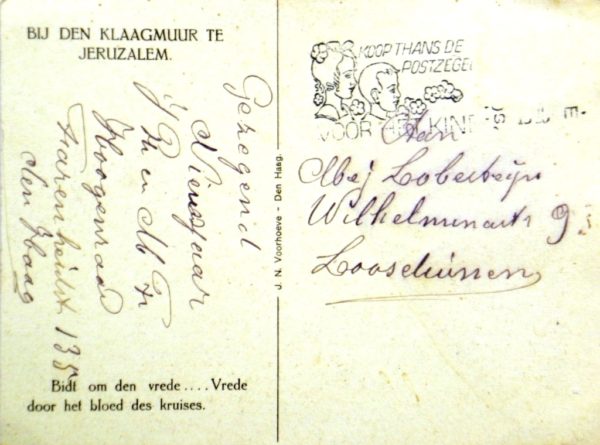 BIJ DEN KLAAGMUUR TE
JERUZALEM.
Gezegend
Nieuwjaar
Fr
Hoogenraad
Farenheitst 135
den Haag
Bidt om den vrede .... Vrede
door het bloed des kruises.
J. N. Voorhoeve - Den Haag.
KOOP THANS DE
POSTZEGEL
VOOR HET KIND
Aan
Mej Lobesteyn
Wilhelminastr 95
Loosduinen